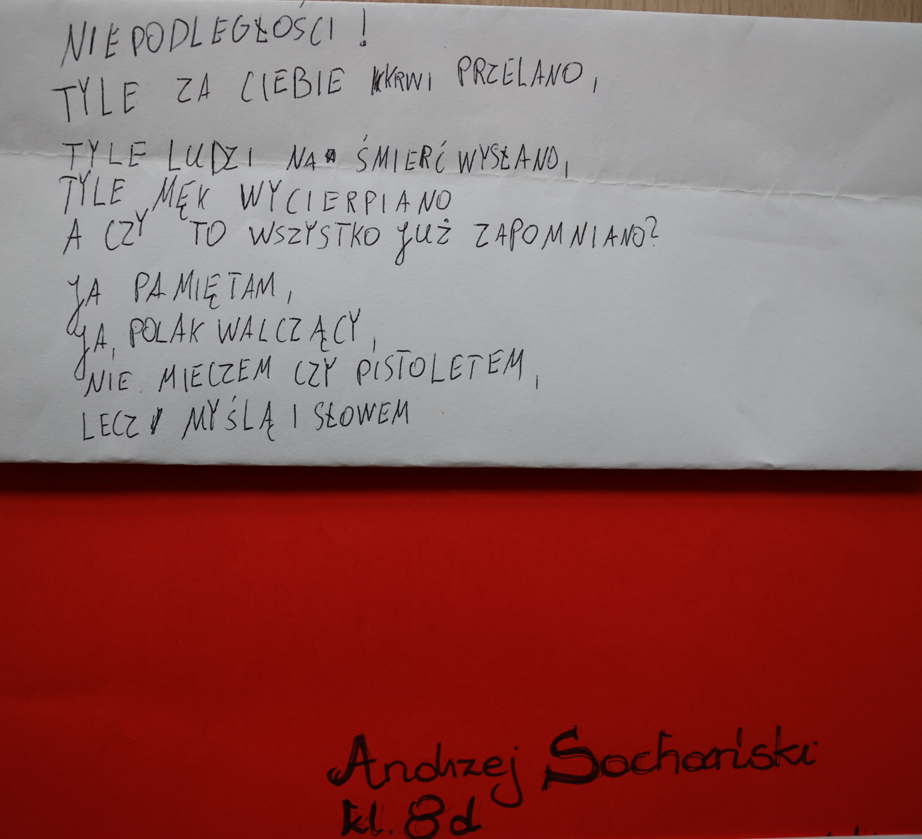 NIEPODLEGŁOŚCI!
TYLE ZA CIEBIE KRWI PRZELANO,
TYLE LUDZI NA ŚMIERĆ WYSŁANO,
TYLE MĘK WYCIERPIANO
A CZY TO WSZYSTKO JUŻ ZAPOMNIANO?
JA PAMIĘTAM,
JA, POLAK WALCZĄCY,
NIE MIECZEM CZY PISTOLETEM,
LECZ MYŚLĄ I SŁOWEM
Andrzej Sochański
kl. 8d